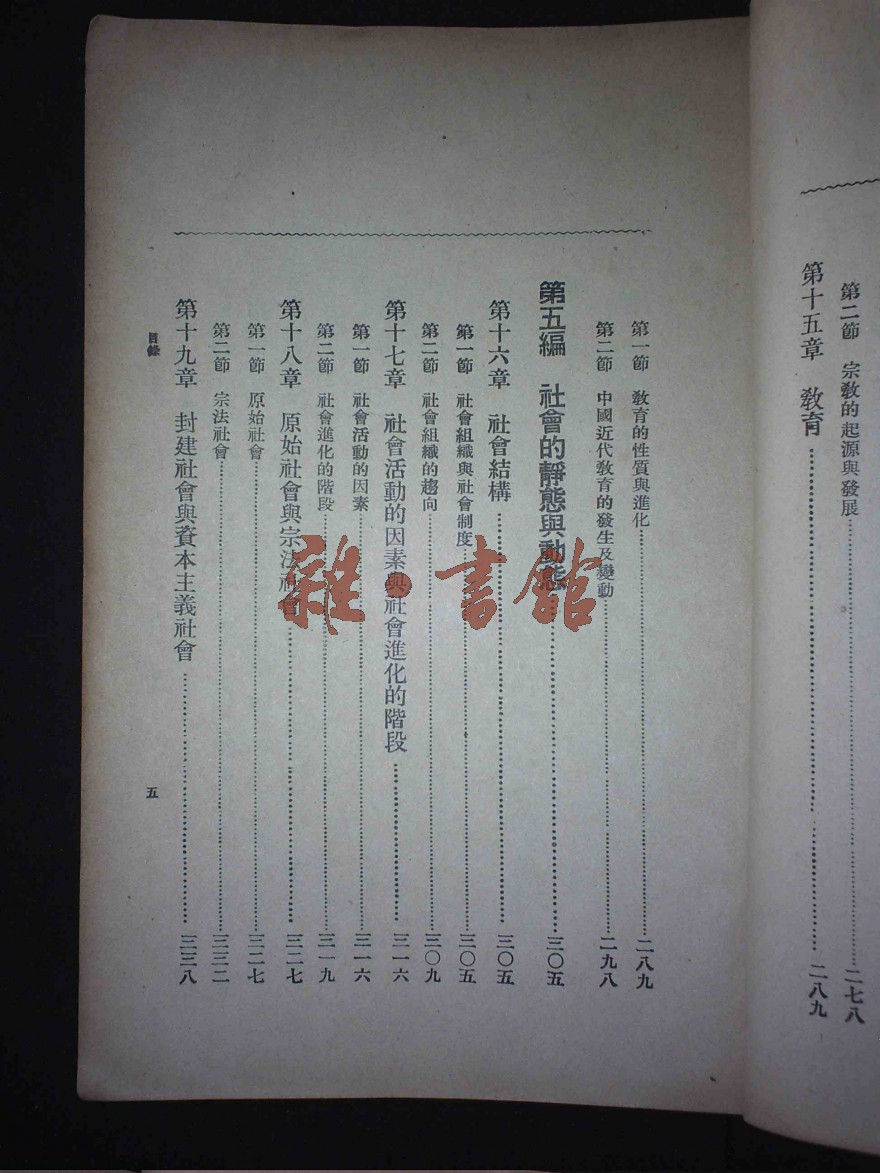 第二節　宗教的起源與發展……二七八
第十五章　教育……二八九
第一節　教育的性質與進化……二八九
第二節　中國近代教育的發生及變動……二九八
第五編　社會的靜態與動態……三〇五
第十六章　社會結構……三〇五
第一節　社會組織與社會制度……三〇五
第二節　社會組織的趨向……三〇九
第十七章　社會活動的因素與社會進化的階段……三一六
第一節　社會活動的因素……三一六
第二節　社會進化的階段……三一九
第十八章　原始社會與宗法社會……三二七
第一節　原始社會……三二七
第二節　宗法社會……三三二
第十九章　封建社會與資本主義社會……三三八
目錄
五
雜·書館